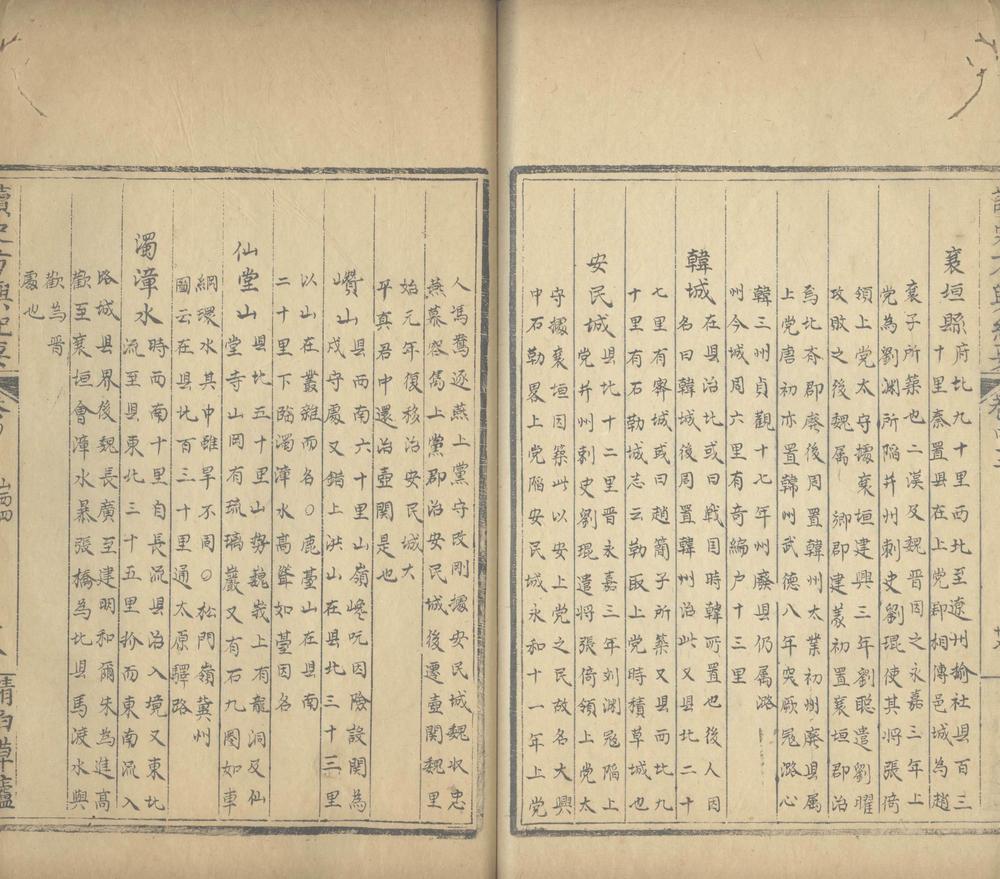 襄垣縣府北九十里西北至遼州榆社县百三
十里秦置县在上党郡相傳邑城為趙
襄子所築也二漢及魏晋因之永嘉三年上
党為劉渊所陷并州刺史劉琨使其将張倚
領上党太守據襄垣建興三年劉聡遣劉曜
攻敗之後魏属 卿郡建義初置襄垣郡治
焉北斉郡廢後周置韓州太業初州廢县属
上党唐初亦置韓州武德八年突厥冦潞心
韓三州貞觀十七年州廢县仍属潞
州今城周六里有奇編户十三里
韓城在县治北或曰战国時韓所置也後人因
名曰韓城後周置韓州治此又县北二十
七里有寨城或曰趙簡子所築又县西北九
十里有石勒城志云勒取上党時積草城也
安民城县北十二里晋永嘉三年刘渊冠陷上
党并州刺史劉琨遣将張倚領上党太
守據襄垣因築此以安上党之民故名大興
中石勒畧上党陷安民城永和十一年上党
人馮鴦逐燕上黨守改剛據安民城魏收忠
燕慕容儁上黨郡治安民城後遷壺関魏里
始元年復移治安民城大
平真君中還治壺関是也
巑山县西南六十里山嶺巉屼因險設関為
戍守處又錯上洪山在县北三十三里
以山在叢雜而名〇鹿臺山在县南
二十里下臨濁漳水高聳如䑓因名
仙堂山县北五十里山势巍峩上有龍洞及仙
堂寺山岡有琉璃巖又有石九圏如車
網環水其中雖旱不涸〇松門嶺冀州
圖云在县北百三十里通太原驛路
濁漳水時西南十里自長流县治入境又東北
流至县東北三十五里折而東南流入
路城县界後魏長廣至建明和爾朱為進高
歡至襄垣會漳水暴張橋為北县馬渡水與
歡為晋
處也
讀史方輿紀要